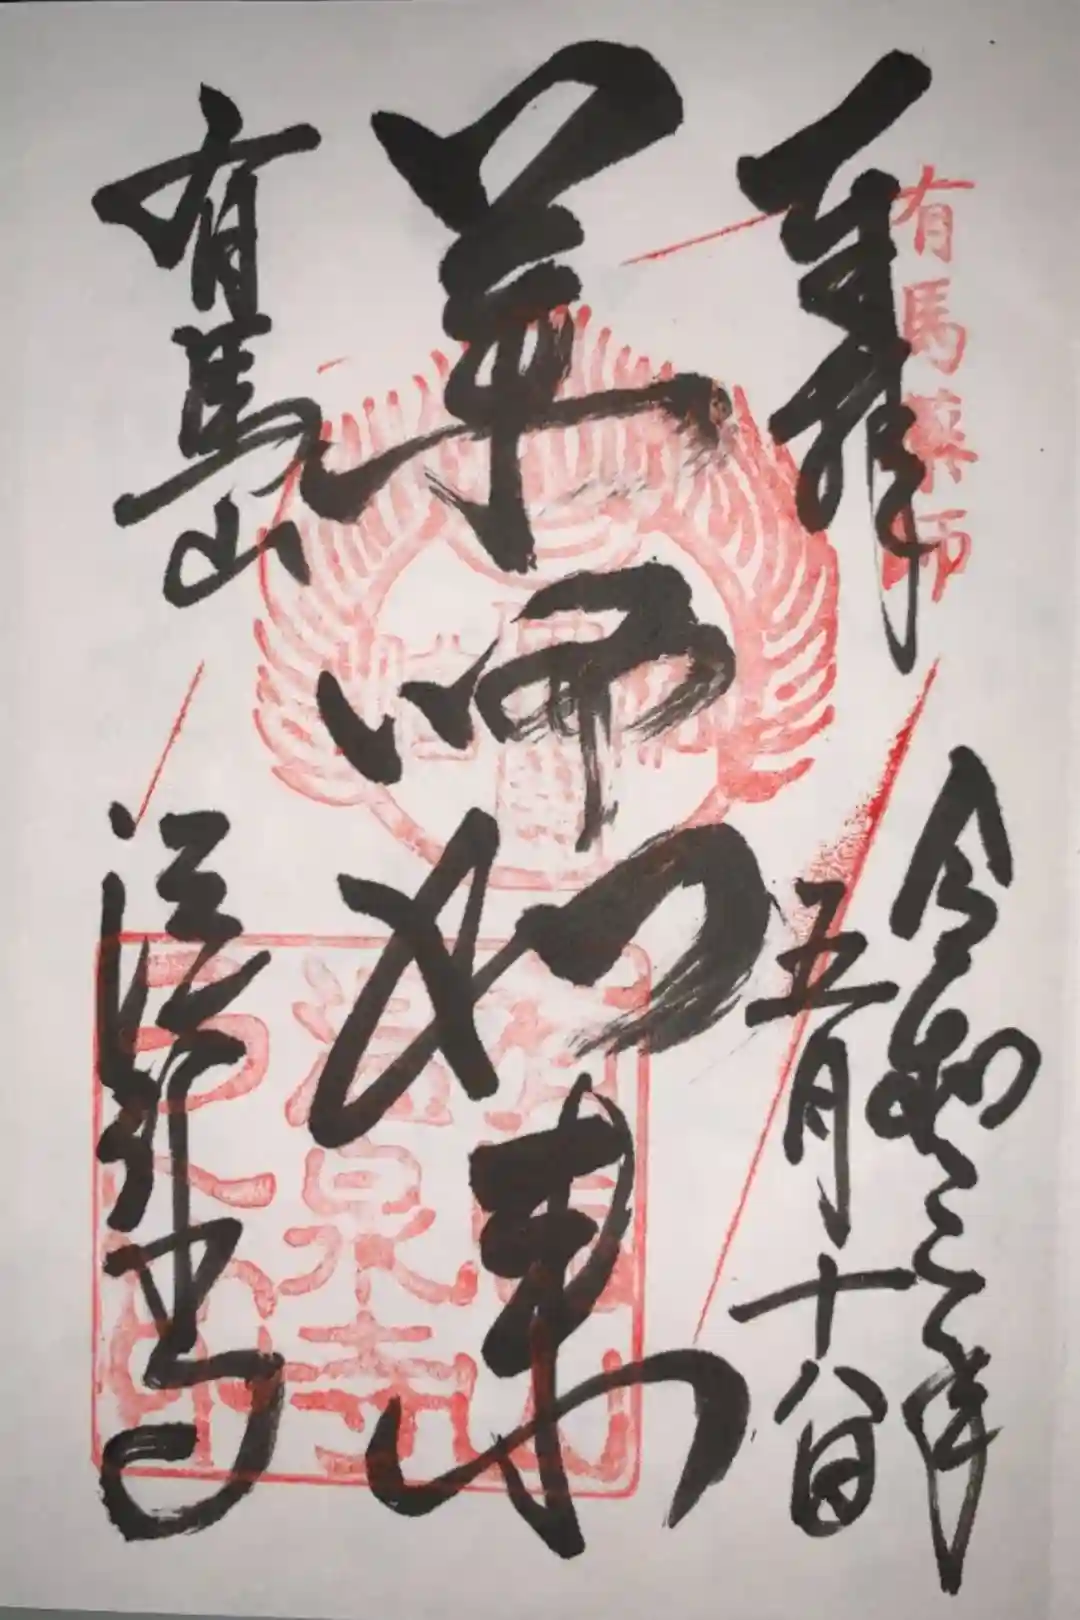 有馬薬師
奉拝
令和三年
五月十八日
薬師如来
有馬山
温泉禅寺